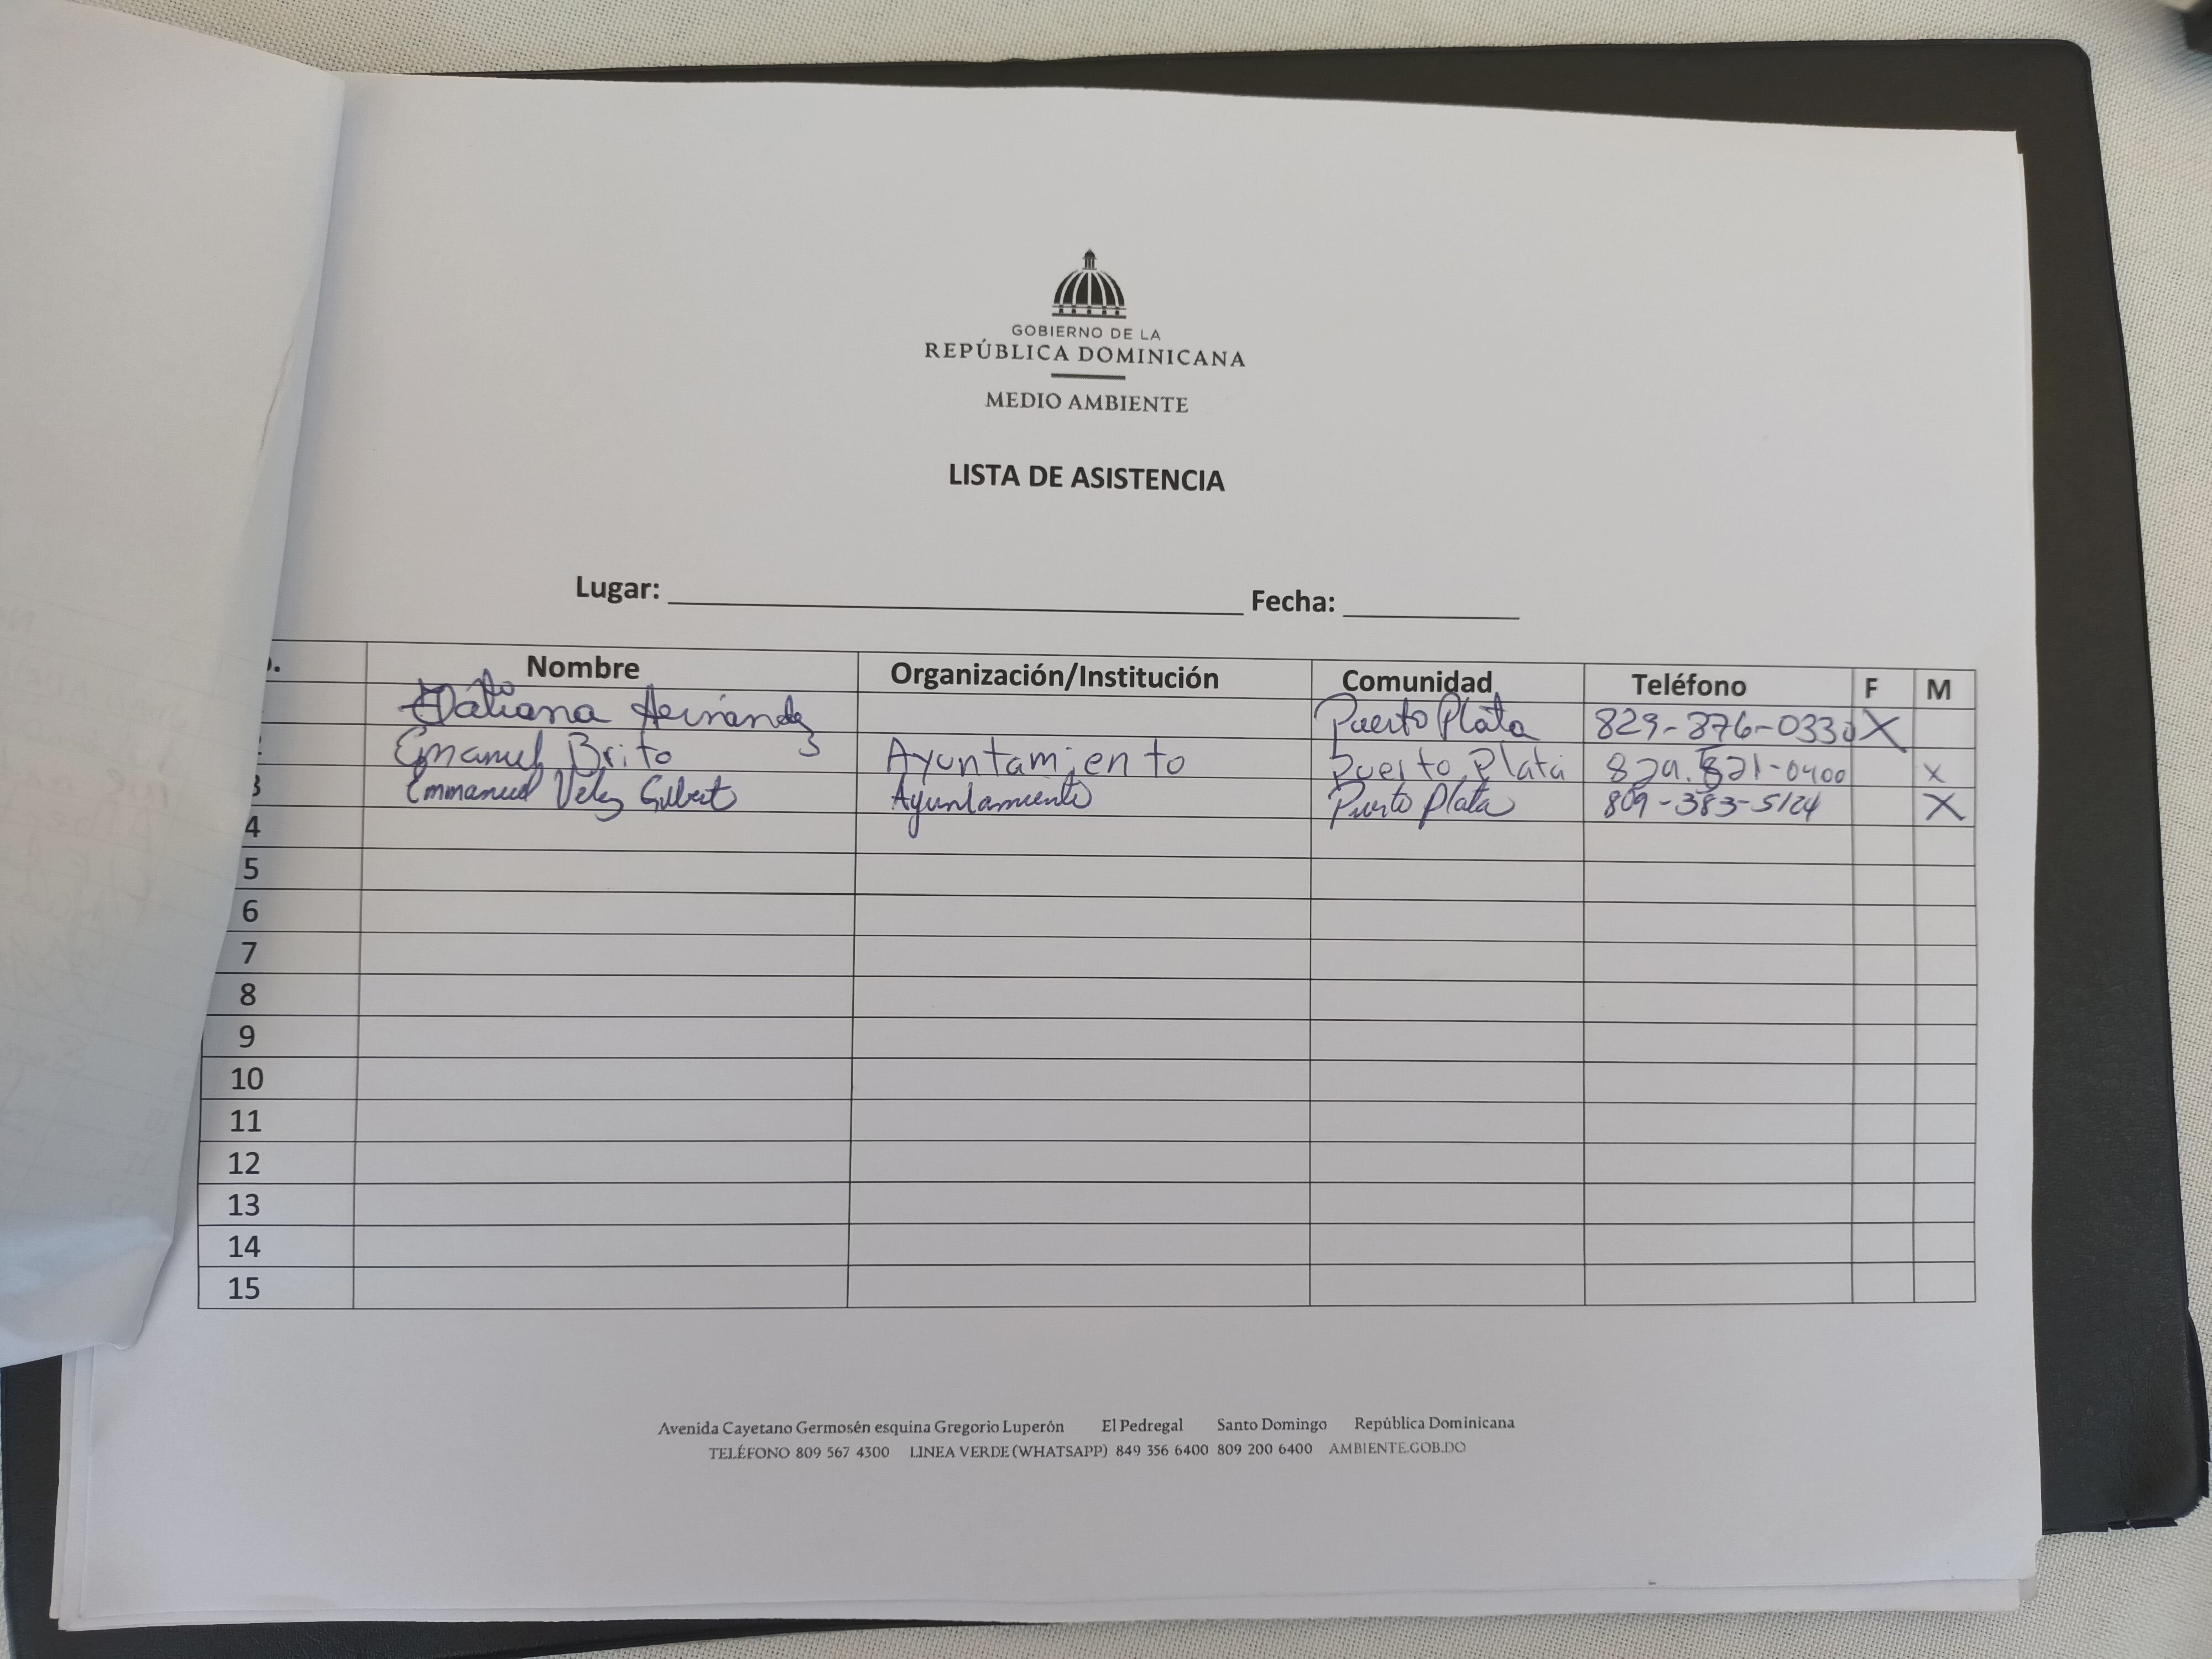 GOBIERNO DE LA
REPÚBLICA DOMINICANA
MEDIO AMBIENTE
LISTA DE ASISTENCIA
Lugar: Fecha:
Nombre Organización/Institución Comunidad Teléfono F M
Hernández Puerto Plata 829-876-0330 X
2 Emanuel Brito Ayuntamiento Puerto Plata 829. 821-0400 X
3 Emmanuel Velez Gilbert Ayuntamiento Puerto Plata 809-383-5124 X
4
5
6
7
8
9
10
11
12
13
14
15
Avenida Cayetano Germosén esquina Gregorio Luperón El Pedregal Santo Domingo República Dominicana
TELÉFONO 809 567 4300 LINEA VERDE (WHATSAPP) 849 356 6400 809 200 6400 AMBIENTE.GOB.DO